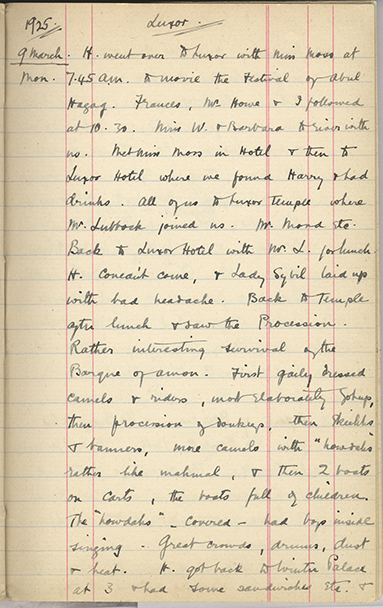 1925. Luxor.
9 March. H. went over to Luxor with Miss Moss at
Mon. 7.45 A.M. to movie the Festival of Abul
Hagag. Frances, Mr. Howe & I followed
at 10.30. Miss W. & Barbara to river with
us. Met Miss Moss in Hotel & then to
Luxor Hotel where we found Harry & had
drinks. All of us to Luxor Temple where
Mr. Lubbock joined us. Mr. Mond etc.
Back to Luxor Hotel with Mr. L. for lunch.
H. couldn't come, & Lady Sybil laid up
with bad headache. Back to Temple
after lunch & saw the Procession.
Rather interesting survival of the
Barque of Amon. First gaily dressed
camels & riders, most elaborately got up,
then procession of donkeys, then Sheikhs
& banners, more camels with "howdahs"
rather like mahmal, & then 2 boats
on carts, the boats full of children.
The "howdahs" - covered - had boys inside
singing. Great crowds, drums, dust
& heat. H. got back to Winter Palace
at 3 & had some sandwiches etc. &